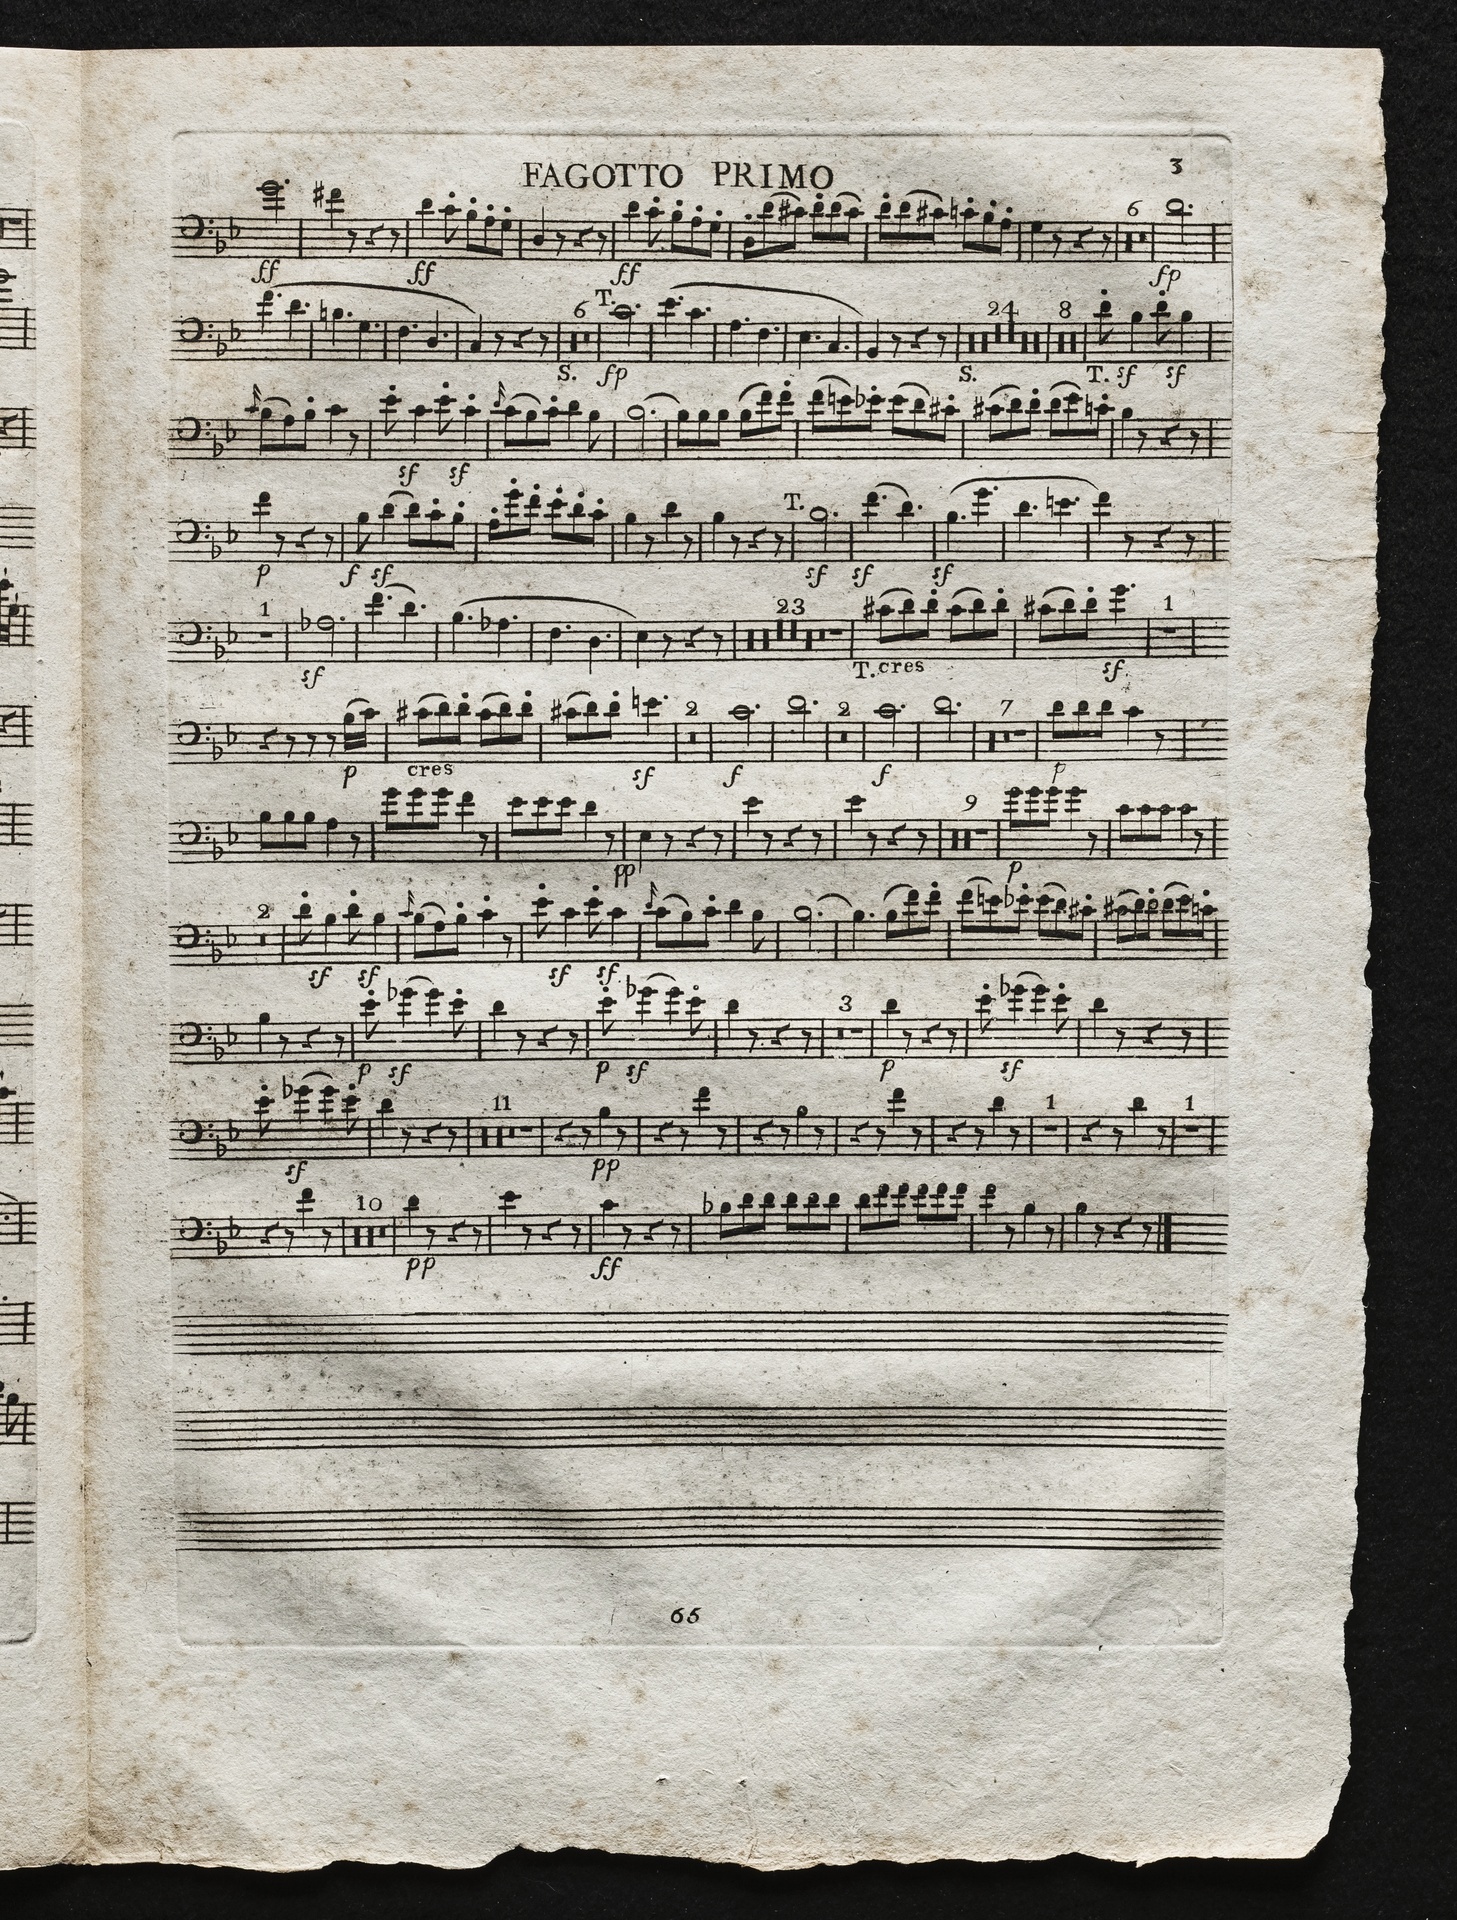 FAGOTTO PRIMO 3
6
ff ff ff fp
6 T. 24 8
S. fp S. T. sf sf
sf sf
T.
p f sf sf sf sf
1 23 1
sf T. cres sf
2 2 7
p cres sf f f p
9
pp p
2
sf sf sf sf
3
p sf p sf p sf
11 1 1
sf pp
10
pp ff
65